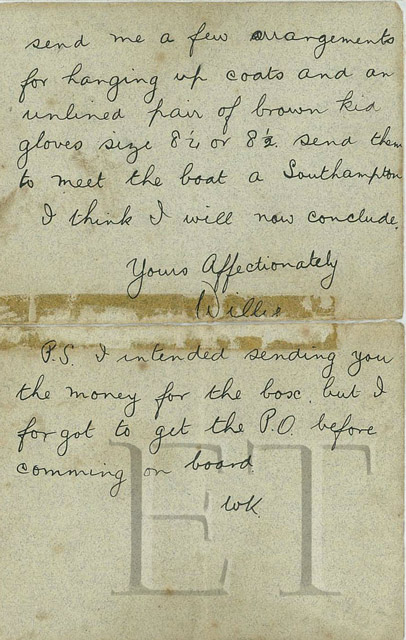 send me a few arrangements
for hanging up coats and an
unlined pair of brown kid
gloves size 8¼ or 8½. send them
to meet the boat a Southampton
I think I will now conclude.
Yours Affectionately
Willie
P.S. I intended sending you
the money for the box. but I
forgot to get the P.O. before
comming on board.
WK.
ET